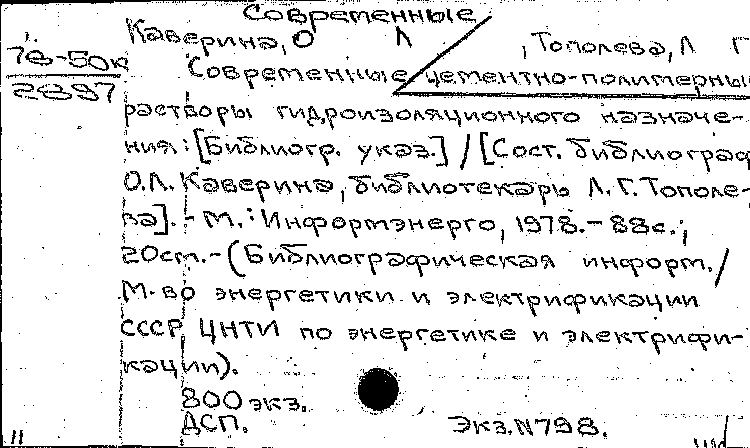 Современные
Каверина, О Л , Тополева, Л Г
78-50к
2897
Современные цементно-полимерные
растворы гидроизоляционного назначе-
ния: [Библиогр. указ.] / [Сост. библиограф
О.Л. Каверина, библиотекарь Л.Г. Тополе-
ва]. - М.: Информэнерго, 1978. - 88с.;
20см. - (Библиографическая информ. /
М-во энергетики и электрификации
СССР, ЦНТИ по энергетике и электрифи-
кации).
800 экз.
ДСП. Экз. N798.